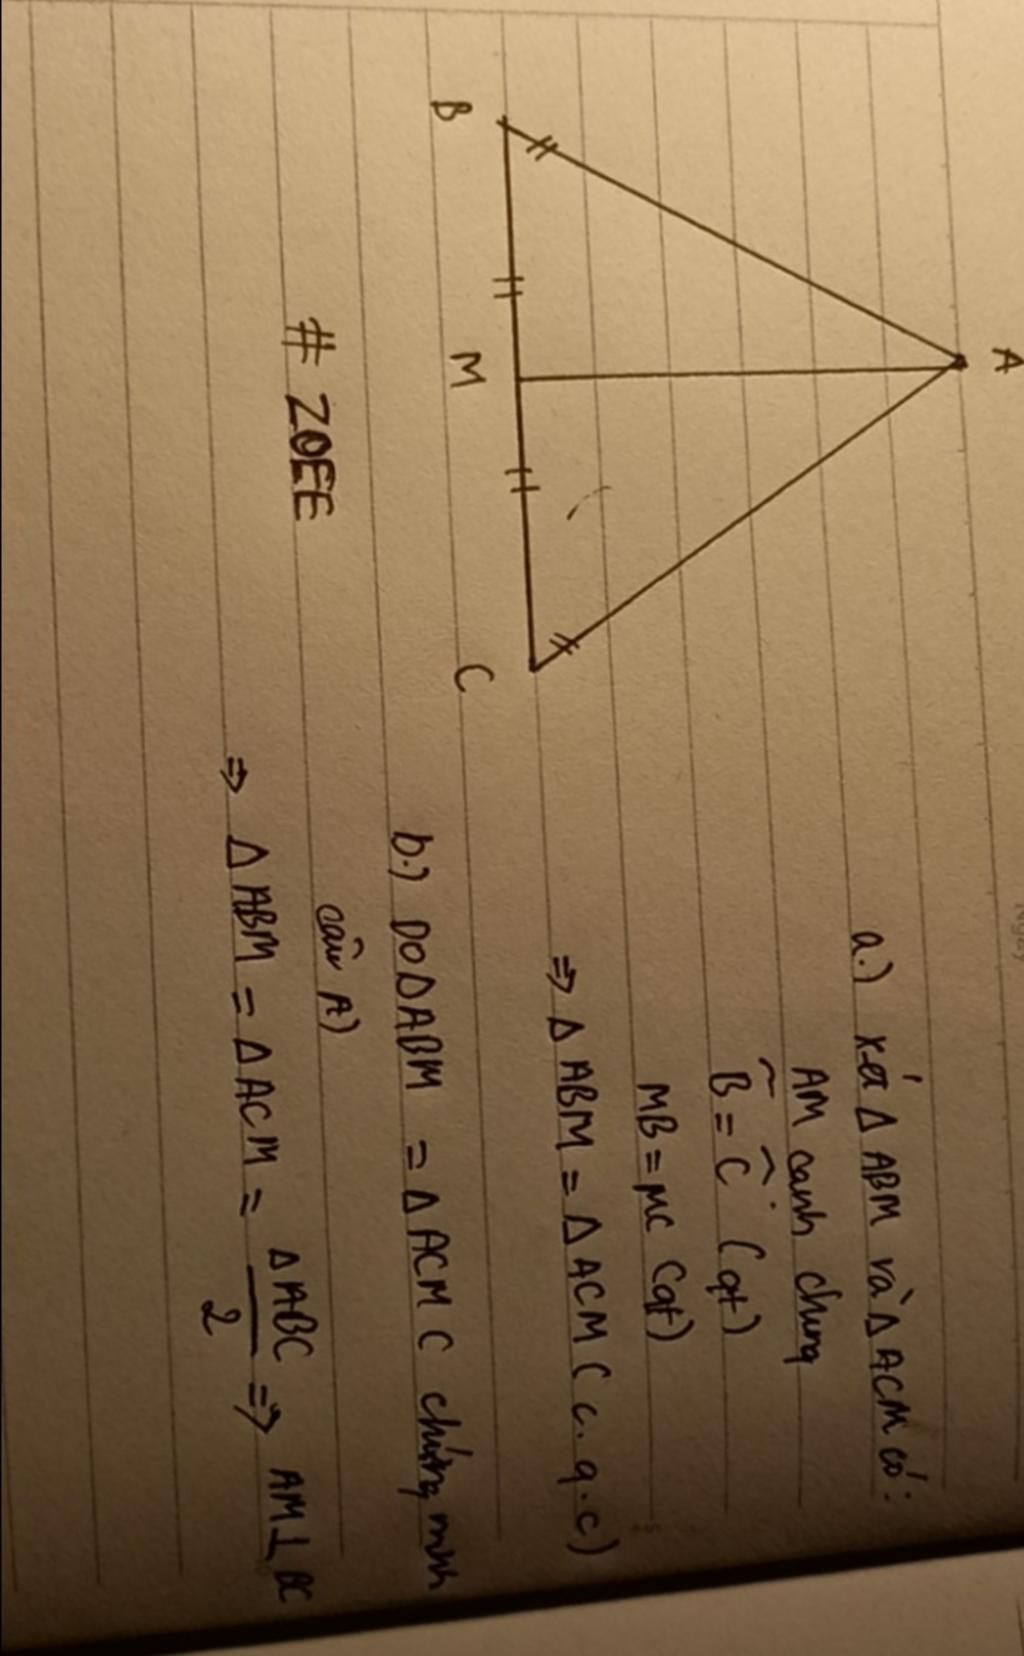 A
B
M
C
# ZOEE
a.) xét Δ ABM và Δ ACM có:
AM cạnh chung
B̂ = Ĉ (gt)
MB = MC (gt)
⇒ Δ ABM = Δ ACM (c.g.c)
b.) DO Δ ABM = Δ ACM ( chứng minh
câu A)
⇒ Δ ABM = Δ ACM = ΔABC/2 ⇒ AM⊥BC